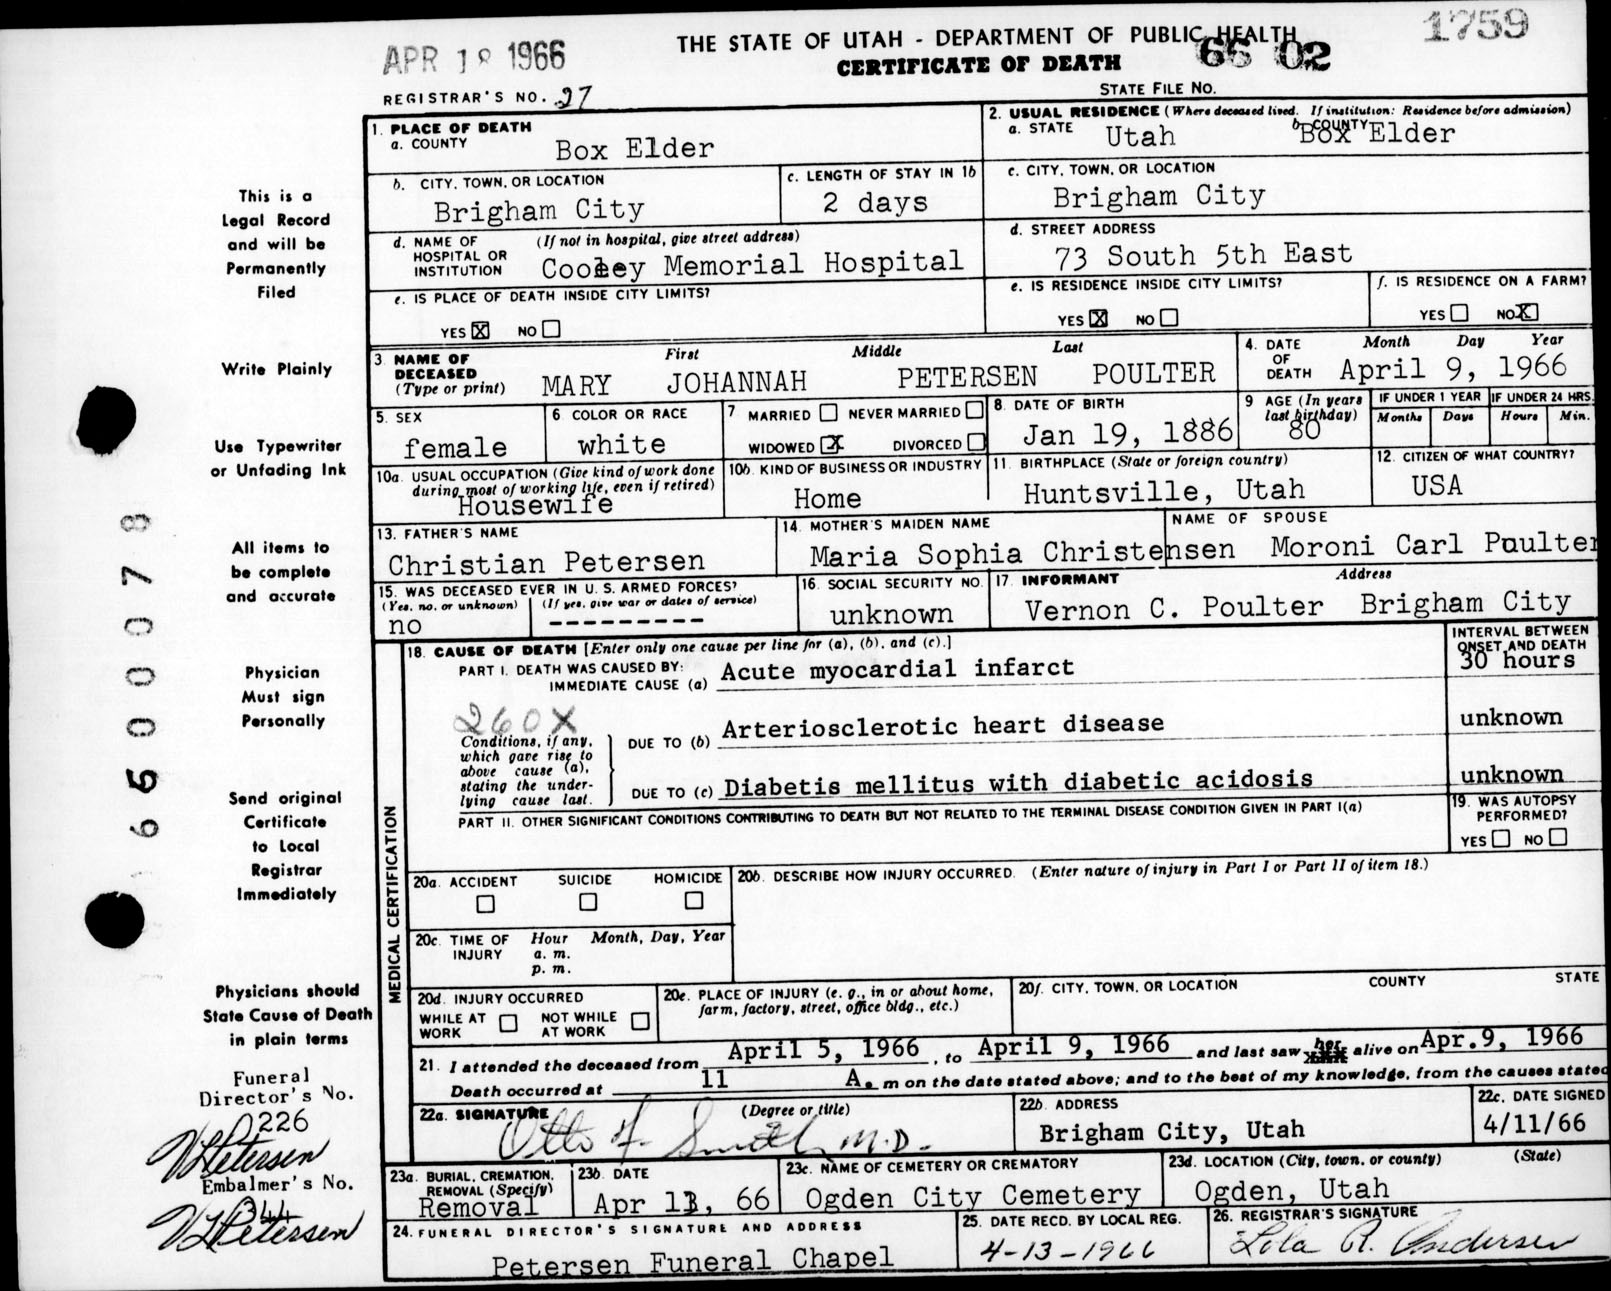 APR 18 1966
THE STATE OF UTAH - DEPARTMENT OF PUBLIC HEALTH
1759
CERTIFICATE OF DEATH
66 02
REGISTRAR'S NO. 27
STATE FILE No.
1. PLACE OF DEATH
a. COUNTY
Box Elder
2. USUAL RESIDENCE (Where deceased lived. If institution: Residence before admission)
a. STATE Utah
b. COUNTY Box Elder
b. CITY, TOWN, OR LOCATION
Brigham City
c. LENGTH OF STAY IN 1b
2 days
c. CITY, TOWN, OR LOCATION
Brigham City
d. NAME OF HOSPITAL OR INSTITUTION
(If not in hospital, give street address)
Cooley Memorial Hospital
d. STREET ADDRESS
73 South 5th East
e. IS PLACE OF DEATH INSIDE CITY LIMITS?
YES X NO
e. IS RESIDENCE INSIDE CITY LIMITS?
YES X NO
f. IS RESIDENCE ON A FARM?
YES NO X
3. NAME OF DECEASED (Type or print)
First Middle Last
MARY JOHANNAH PETERSEN POULTER
4. DATE OF DEATH
Month Day Year
April 9, 1966
5. SEX
female
6 COLOR OR RACE
white
7 MARRIED NEVER MARRIED
WIDOWED X DIVORCED
8. DATE OF BIRTH
Jan 19, 1886
9 AGE (In years last birthday)
80
IF UNDER 1 YEAR
Months Days
IF UNDER 24 HRS.
Hours Min.
10a. USUAL OCCUPATION (Give kind of work done during most of working life, even if retired)
Housewife
10b. KIND OF BUSINESS OR INDUSTRY
Home
11. BIRTHPLACE (State or foreign country)
Huntsville, Utah
12. CITIZEN OF WHAT COUNTRY?
USA
13. FATHER'S NAME
Christian Petersen
14. MOTHER'S MAIDEN NAME
Maria Sophia Christensen
NAME OF SPOUSE
Moroni Carl Poulter
15. WAS DECEASED EVER IN U. S. ARMED FORCES?
(Yes, no, or unknown) (If yes, give war or dates of service)
no ---------
16. SOCIAL SECURITY NO.
unknown
17. INFORMANT Address
Vernon C. Poulter Brigham City
MEDICAL CERTIFICATION
18. CAUSE OF DEATH [Enter only one cause per line for (a), (b), and (c).]
INTERVAL BETWEEN ONSET AND DEATH
PART I. DEATH WAS CAUSED BY:
IMMEDIATE CAUSE (a) Acute myocardial infarct
30 hours
260X
Conditions, if any, which gave rise to above cause (a), stating the underlying cause last.
DUE TO (b) Arteriosclerotic heart disease
unknown
DUE TO (c) Diabetis mellitus with diabetic acidosis
unknown
PART II. OTHER SIGNIFICANT CONDITIONS CONTRIBUTING TO DEATH BUT NOT RELATED TO THE TERMINAL DISEASE CONDITION GIVEN IN PART I(a)
19. WAS AUTOPSY PERFORMED?
YES NO
20a. ACCIDENT SUICIDE HOMICIDE
20b. DESCRIBE HOW INJURY OCCURRED. (Enter nature of injury in Part I or Part II of item 18.)
20c. TIME OF INJURY
Hour Month, Day, Year
a. m.
p. m.
20d. INJURY OCCURRED
WHILE AT WORK
NOT WHILE AT WORK
20e. PLACE OF INJURY (e. g., in or about home, farm, factory, street, office bldg., etc.)
20f. CITY, TOWN, OR LOCATION COUNTY STATE
21. I attended the deceased from April 5, 1966, to April 9, 1966 and last saw her alive on Apr.9, 1966
Death occurred at 11 A. m on the date stated above; and to the best of my knowledge, from the causes stated
22a. SIGNATURE (Degree or title)
Otto F. Smith, M.D.
22b. ADDRESS
Brigham City, Utah
22c. DATE SIGNED
4/11/66
23a. BURIAL, CREMATION, REMOVAL (Specify)
Removal
23b. DATE
Apr 13, 66
23c. NAME OF CEMETERY OR CREMATORY
Ogden City Cemetery
23d. LOCATION (City, town, or county) (State)
Ogden, Utah
24. FUNERAL DIRECTOR'S SIGNATURE AND ADDRESS
Petersen Funeral Chapel
25. DATE RECD. BY LOCAL REG.
4-13-1966
26. REGISTRAR'S SIGNATURE
Lola R. Andersen
This is a
Legal Record
and will be
Permanently
Filed
Write Plainly
Use Typewriter
or Unfading Ink
All items to
be complete
and accurate
Physician
Must sign
Personally
Send original
Certificate
to Local
Registrar
Immediately
Physicians should
State Cause of Death
in plain terms
Funeral
Director's No.
226
V L Petersen
Embalmer's No.
344
V L Petersen
6650078